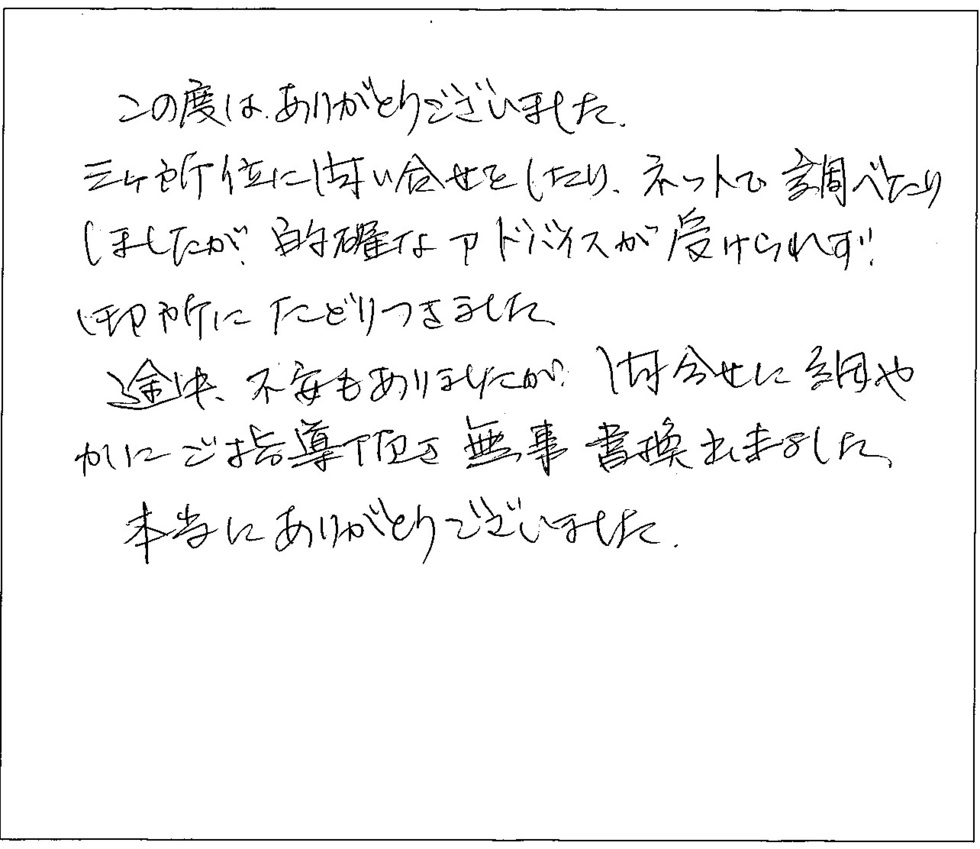 この度は、ありがとうございました。
三ヶ所位に問い合せをしたり、ネットで調べたり
しましたが、的確なアドバイスが受けられず!
御所にたどりつきました。
途中、不安もありましたが、問合せに細や
かにご指導下頂き無事書換出来ました。
本当にありがとうございました。